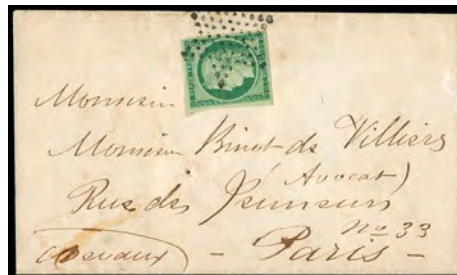 Monsieur
Monsieur Binot de Villiers
Avocat)
Rue des Jeuneurs
No 33
- Paris -